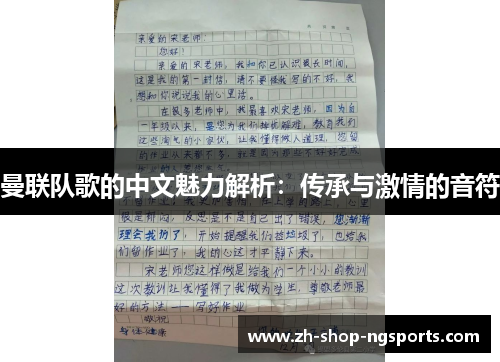 亲爱的宋老师:
您好!
亲爱的宋老师,我和你已认识很长时间,
这是我的第一封信,请不要怪我写的不好,我
想和你说说我的心里话。
在很多老师中,我最喜欢宋老师,因为自
一年级以来,是您为我们排忧解难,教育我们
这些淘气的小家伙,让我懂得做人道理,您留
曼联队歌的中文魅力解析:传承与激情的音符
眼是辩问,反思是不是自己出了错误,您渐渐
理会我们了,开始提醒我们捡垃圾了,也给我
们留作业了,我的心这才平静下来。
宋老师您这样做是给我们一个小小的教训
这次教训让我懂得了我做为学生,尊敬老师最
好的方法——写好作业
敬祝
身体健康
www.zh-shop-ngsports.com